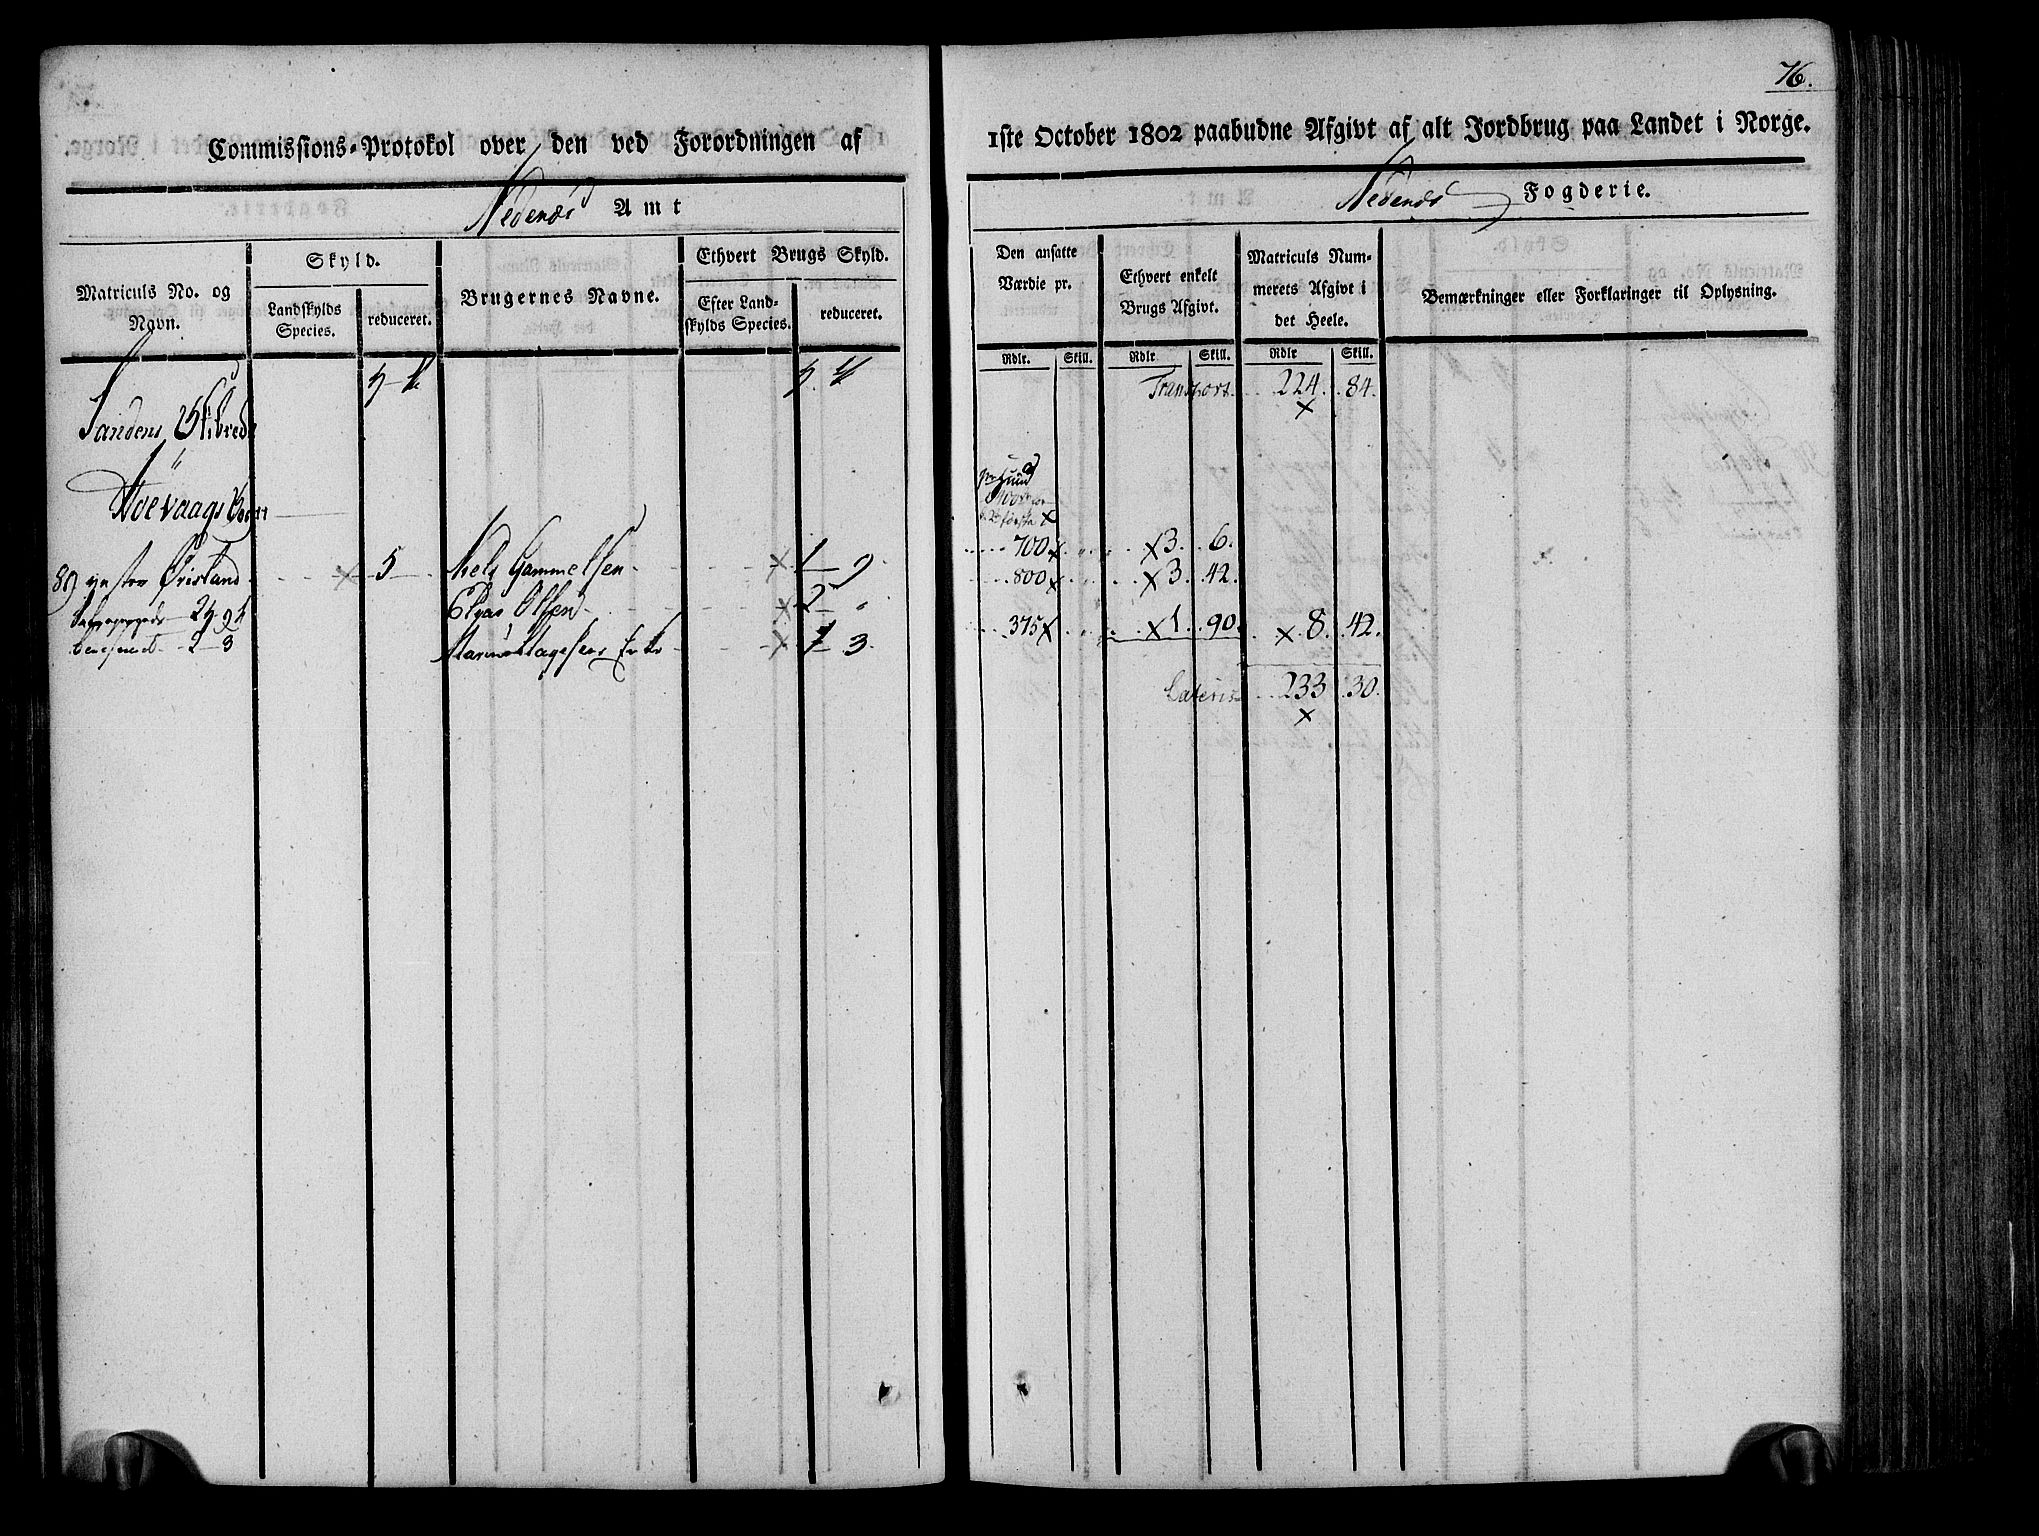 76.
Commissions-Protokol over den ved Forordningen af
1ste October 1802 paabudne Afgivt af alt Jordbrug paa Landet i Norge.
Nedenæs Amt
Nedenæs Fogderie.
Matriculs No. og Navn.
Skyld.
Landskylds Species.
reduceret.
Brugernes Navne.
Ethvert Brugs Skyld.
Efter Landskylds Species.
reduceret.
Den ansatte Værdie pr.
Ethvert enkelt Brugs Afgivt.
Matriculs Nummerets Afgivt i det Heele.
Bemærkninger eller Forklaringer til Oplysning.
Rdlr. Skill. Rdlr Skill. Rdlr Skill.
Transport 224. 84.
Sandens Skibrede
Høevaags Sogn
89 Øvestad 5 Niels Gammelsen 1 9 700 3. 6.
Elias Olsen 2 800 3. 42.
1 3. 375 1. 90. 8. 42.
Lateris 233 30.